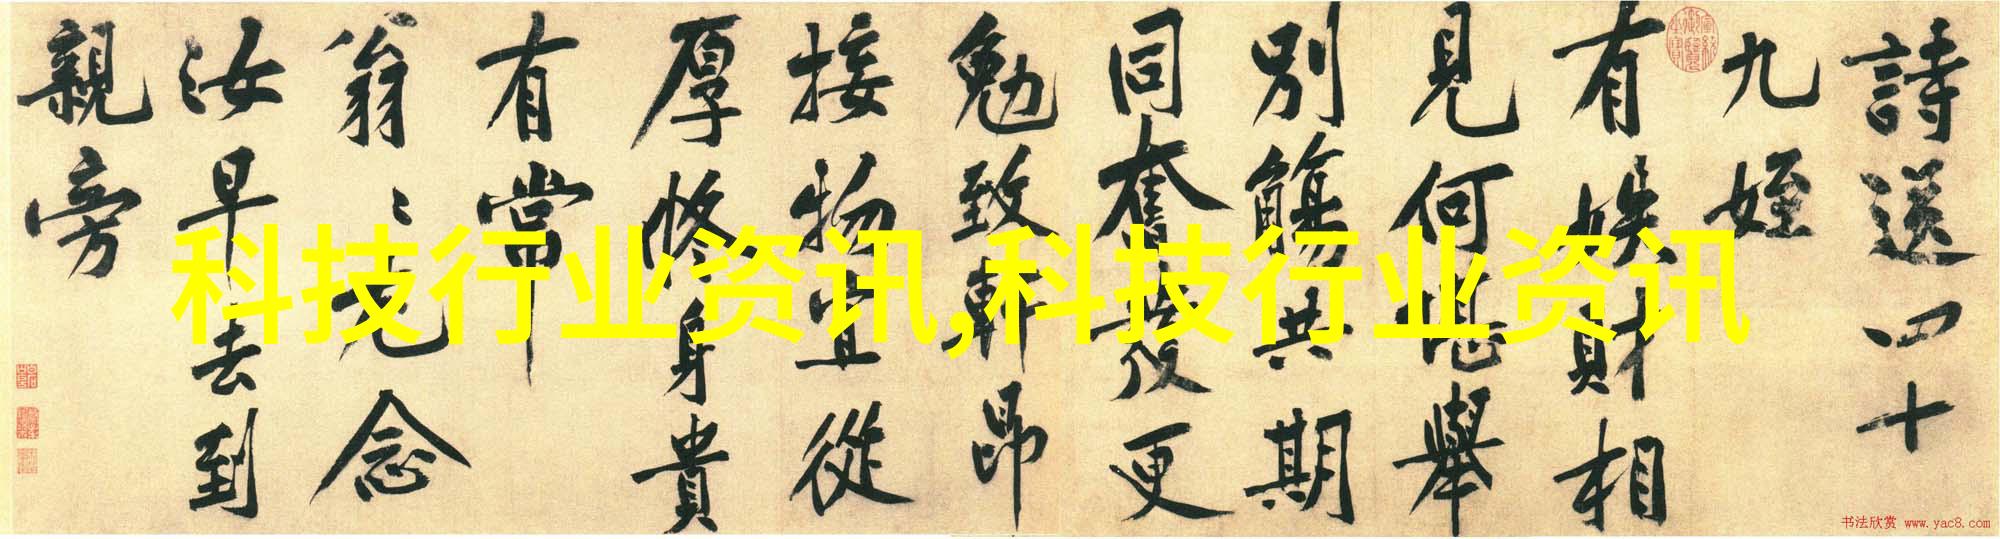 詩送四十
九姪
有娱財相
見何堪舉
別觴共期
同奮發更
勉致軒昂
接物宜從
厚修身貴
有常
翁〻九念
汝早去到
親旁
科技行业资讯,科技行业资讯
书法欣赏 www.yac8.com